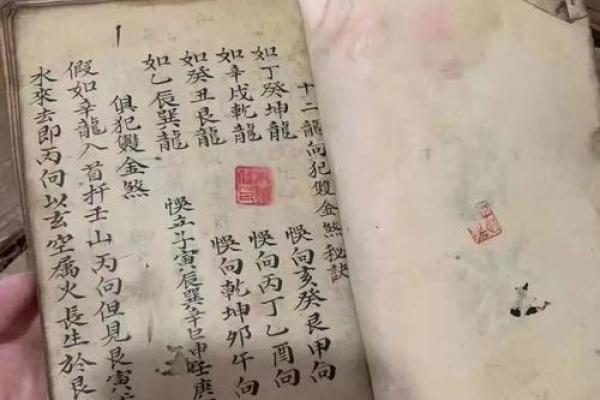 十二龍向犯雙金煞秘訣
如丁癸坤龍 悮向亥癸艮甲向
如辛戌乾龍 悮向丙丁乙酉向
如癸丑艮龍 悮向乾坤卯午向
如乙辰巽龍 悮立子寅辰巽辛巳申壬庚
俱犯雙金煞
假如辛龍入首扦壬山丙向但見艮寅
水來去即丙向以玄空属火長生於艮